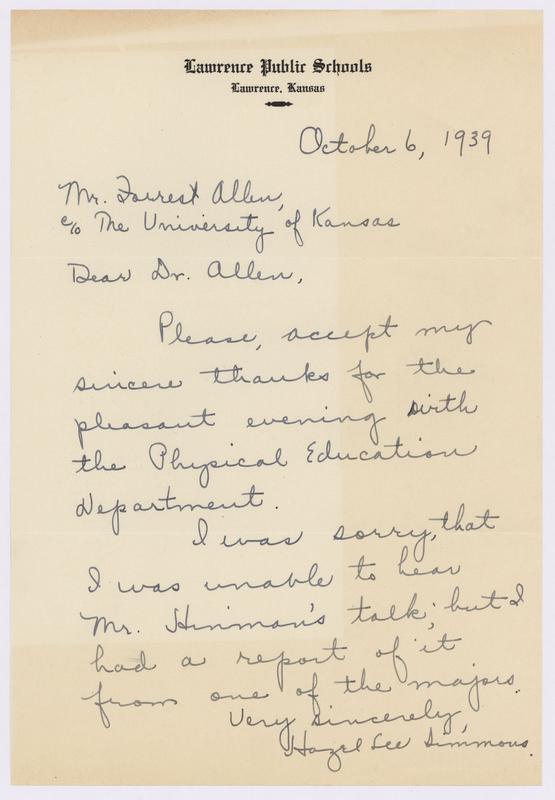 Lawrence Public Schools
Lawrence, Kansas
October 6, 1939
Mr. Forrest Allen,
c/o The University of Kansas
Dear Dr. Allen,
Please, accept my
sincere thanks for the
pleasant evening with
the Physical Education
department.
I was sorry, that
I was unable to hear
Mr. Hinman's talk; but I
had a report of it
from one of the majors.
Very sincerely,
Hazel Lee Simmons.